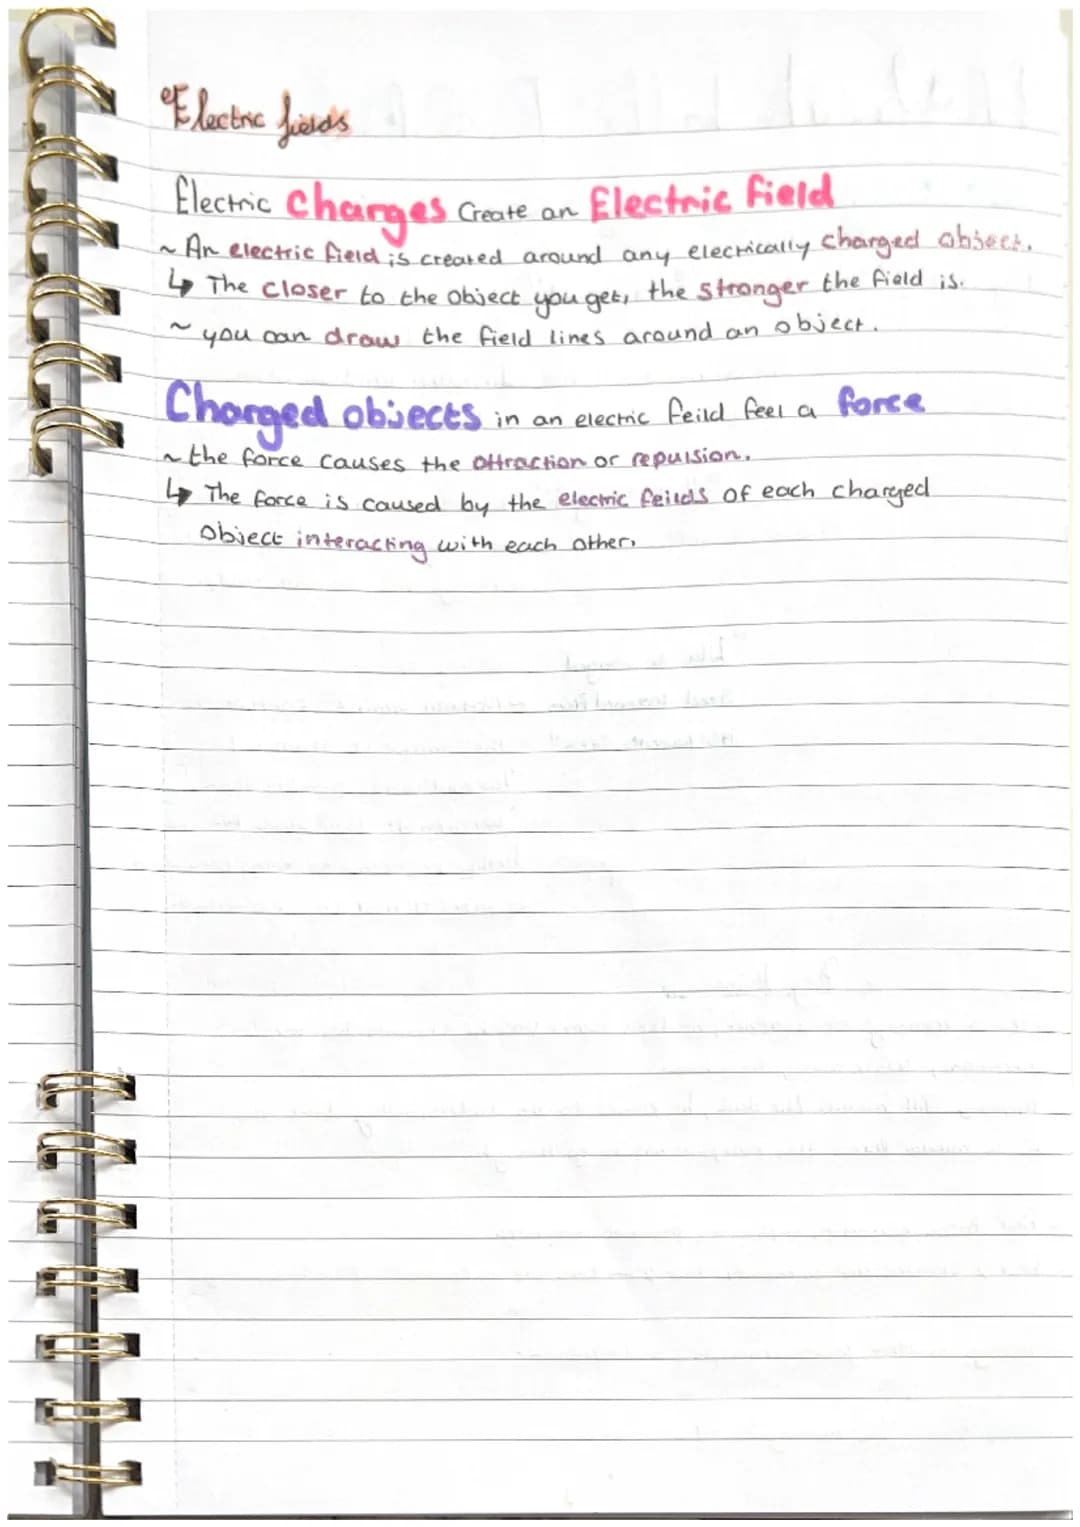 Electric fields
Electric Charges Create an Electric field
~ An electric field is created around any electrically charged object.
↳ The closer to the object you get, the stronger the field is.
~ you can draw the field lines around an object.
Charged objects in an electric feild feel a force
~ the force causes the attraction or repulsion.
↳ The force is caused by the electric feilds of each charged
object interacting with each other.